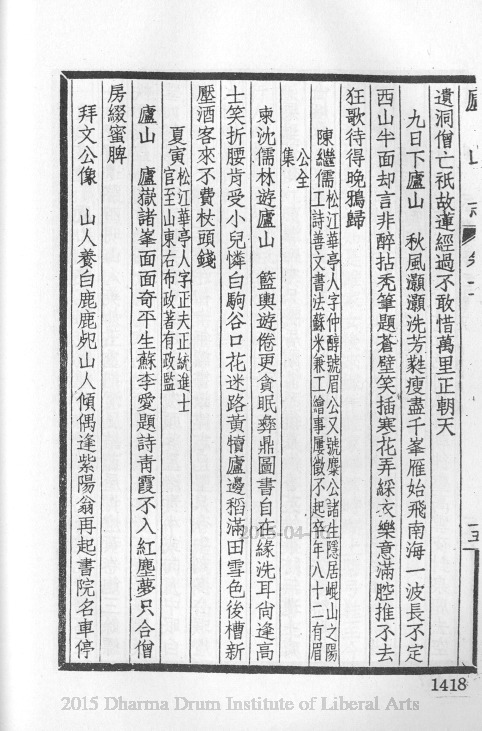 廬山志
十五
遺洞僧亡祇故蓮經過不敢惜萬里正朝天
九日下廬山　秋風灝灝洗芳蕤瘦盡千峯雁始飛南海一波長不定
西山半面却言非醉拈禿筆題蒼壁笑插寒花弄綵衣樂意滿腔推不去
狂歌待得晚鴉歸
陳繼儒松江華亭人字仲醇號眉公又號麋公諸生隱居崐山之陽
工詩善文書法蘇米兼工繪事屢徵不起卒年八十二有眉
公全
集
柬沈儒林遊廬山　籃輿遊倦更貪眠彝鼎圖書自在緣洗耳尙逢高
士笑折腰肯受小兒憐白駒谷口花迷路黃犢廬邊稻滿田雪色後槽新
壓酒客來不費杖頭錢
夏寅松江華亭人字正夫正統進士
官至山東右布政著有政監
廬山　廬嶽諸峯面面奇平生蘇李愛題詩靑霞不入紅塵夢只合僧
房綴蜜脾
拜文公像　山人養白鹿鹿死山人傾偶逢紫陽翁再起書院名車停
1418
2015 Dharma Drum Institute of Liberal Arts